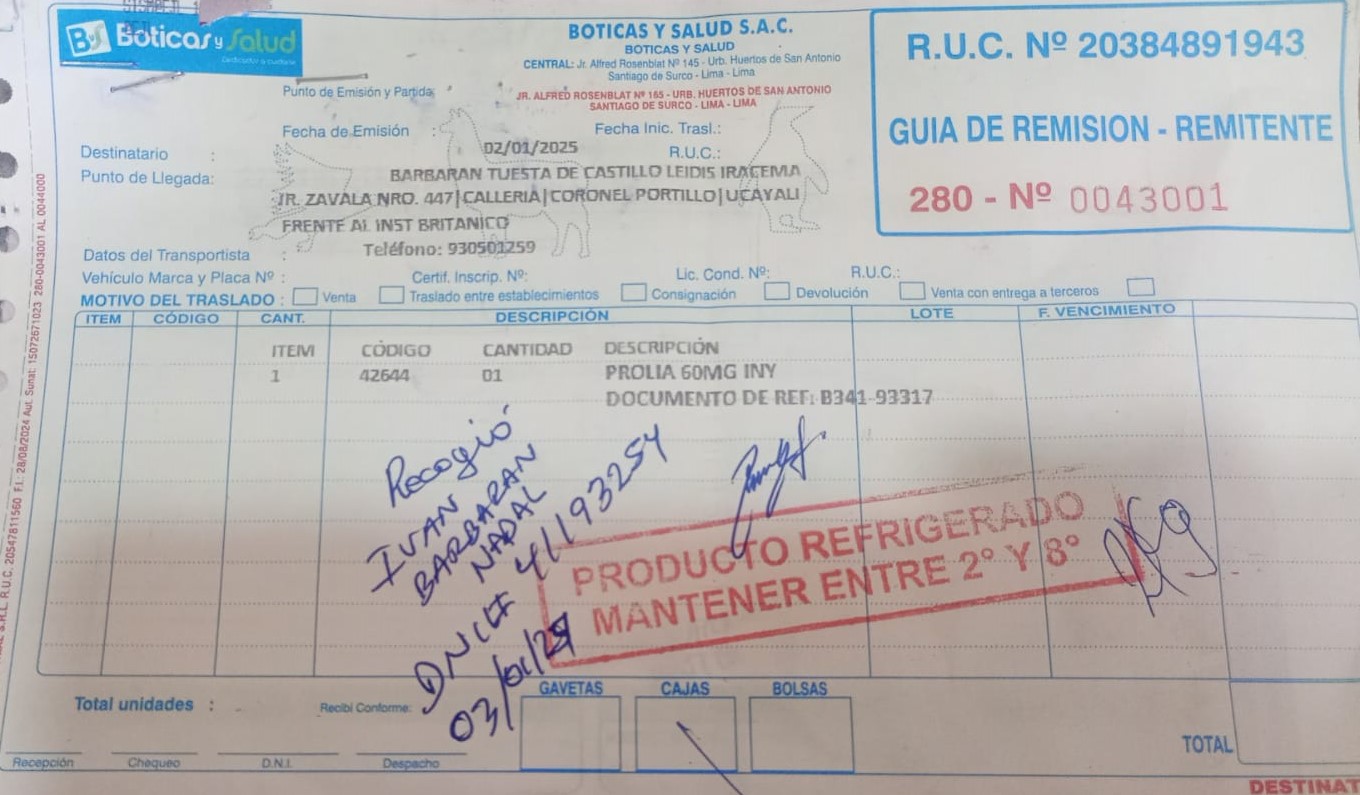 Boticas y Salud
BOTICAS Y SALUD S.A.C.
BOTICAS Y SALUD
CENTRAL: Jr. Alfred Rosenblat Nº 145 - Urb. Huertos de San Antonio
Santiago de Surco - Lima - Lima
Punto de Emisión y Partida:
JR. ALFRED ROSENBLAT Nº 165 - URB. HUERTOS DE SAN ANTONIO
SANTIAGO DE SURCO - LIMA - LIMA
R.U.C. Nº 20384891943
GUIA DE REMISION - REMITENTE
280 - Nº 0043001
Fecha de Emisión : 02/01/2025 Fecha Inic. Trasl.:
Destinatario : R.U.C.:
BARBARAN TUESTA DE CASTILLO LEIDIS IRACEMA
Punto de Llegada:
JR. ZAVALA NRO. 447|CALLERIA|CORONEL PORTILLO|UCAYALI
FRENTE AL INST BRITANICO
Teléfono: 930501259
Datos del Transportista :
Vehículo Marca y Placa Nº : Certif. Inscrip. Nº: Lic. Cond. Nº: R.U.C.:
MOTIVO DEL TRASLADO : Venta Traslado entre establecimientos Consignación Devolución Venta con entrega a terceros
ITEM CÓDIGO CANT. DESCRIPCIÓN LOTE F. VENCIMIENTO
ITEM CÓDIGO CANTIDAD DESCRIPCIÓN
1 42644 01 PROLIA 60MG INY
DOCUMENTO DE REF: B341-93317
Recogió
IVAN
BARBARAN
NADAL
41193254
03/01/25
PRODUCTO REFRIGERADO
MANTENER ENTRE 2° Y 8°
GAVETAS CAJAS BOLSAS
Total unidades : Recibí Conforme:
TOTAL
Recepción Chequeo D.N.I. Despacho
DESTINAT
R.U.C. 20547811560 F.I.: 28/08/2024 Aut. Sunat: 15072671023 280-0043001 AL 0044000